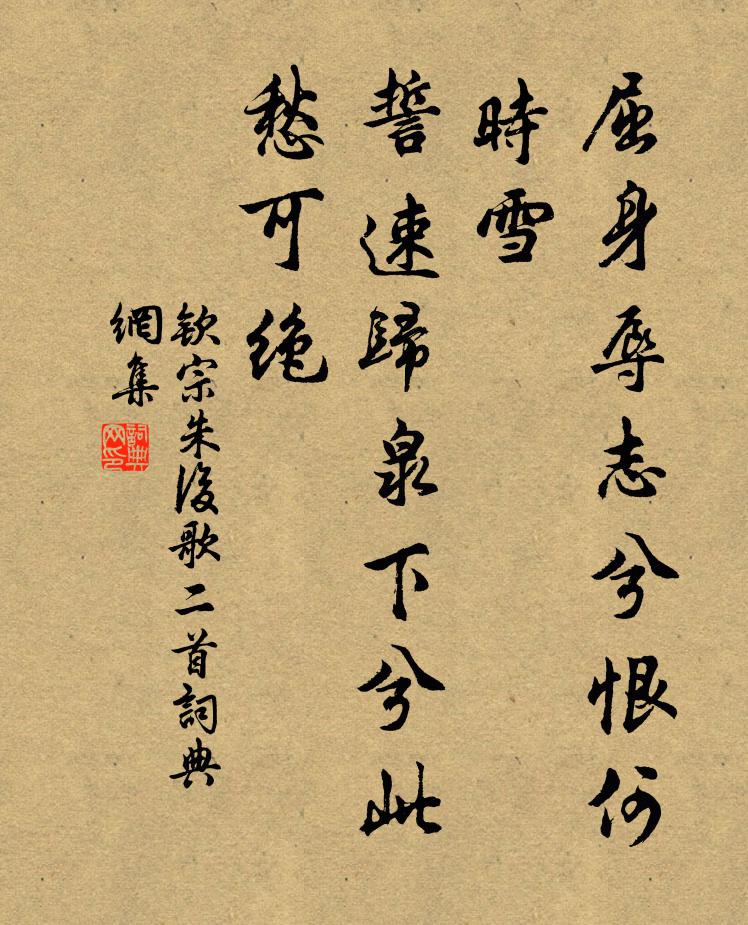 屈身辱志兮恨何
時雪
誓速歸泉下兮此
愁可絕
欽宗朱後歌二首詞典
網集
詞典
网印